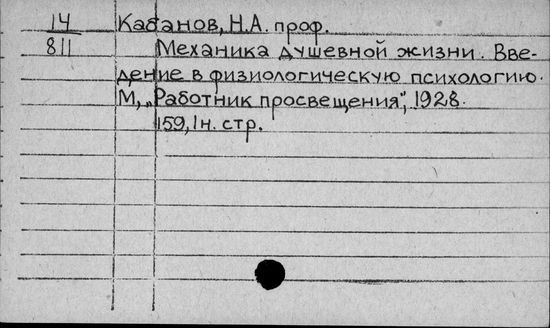 14 Кабанов, Н.А. проф.
811 Механика душевной жизни. Вве-
дение в физиологическую психологию.
М, „Работник просвещения", 1928.
159, 1 н. стр.